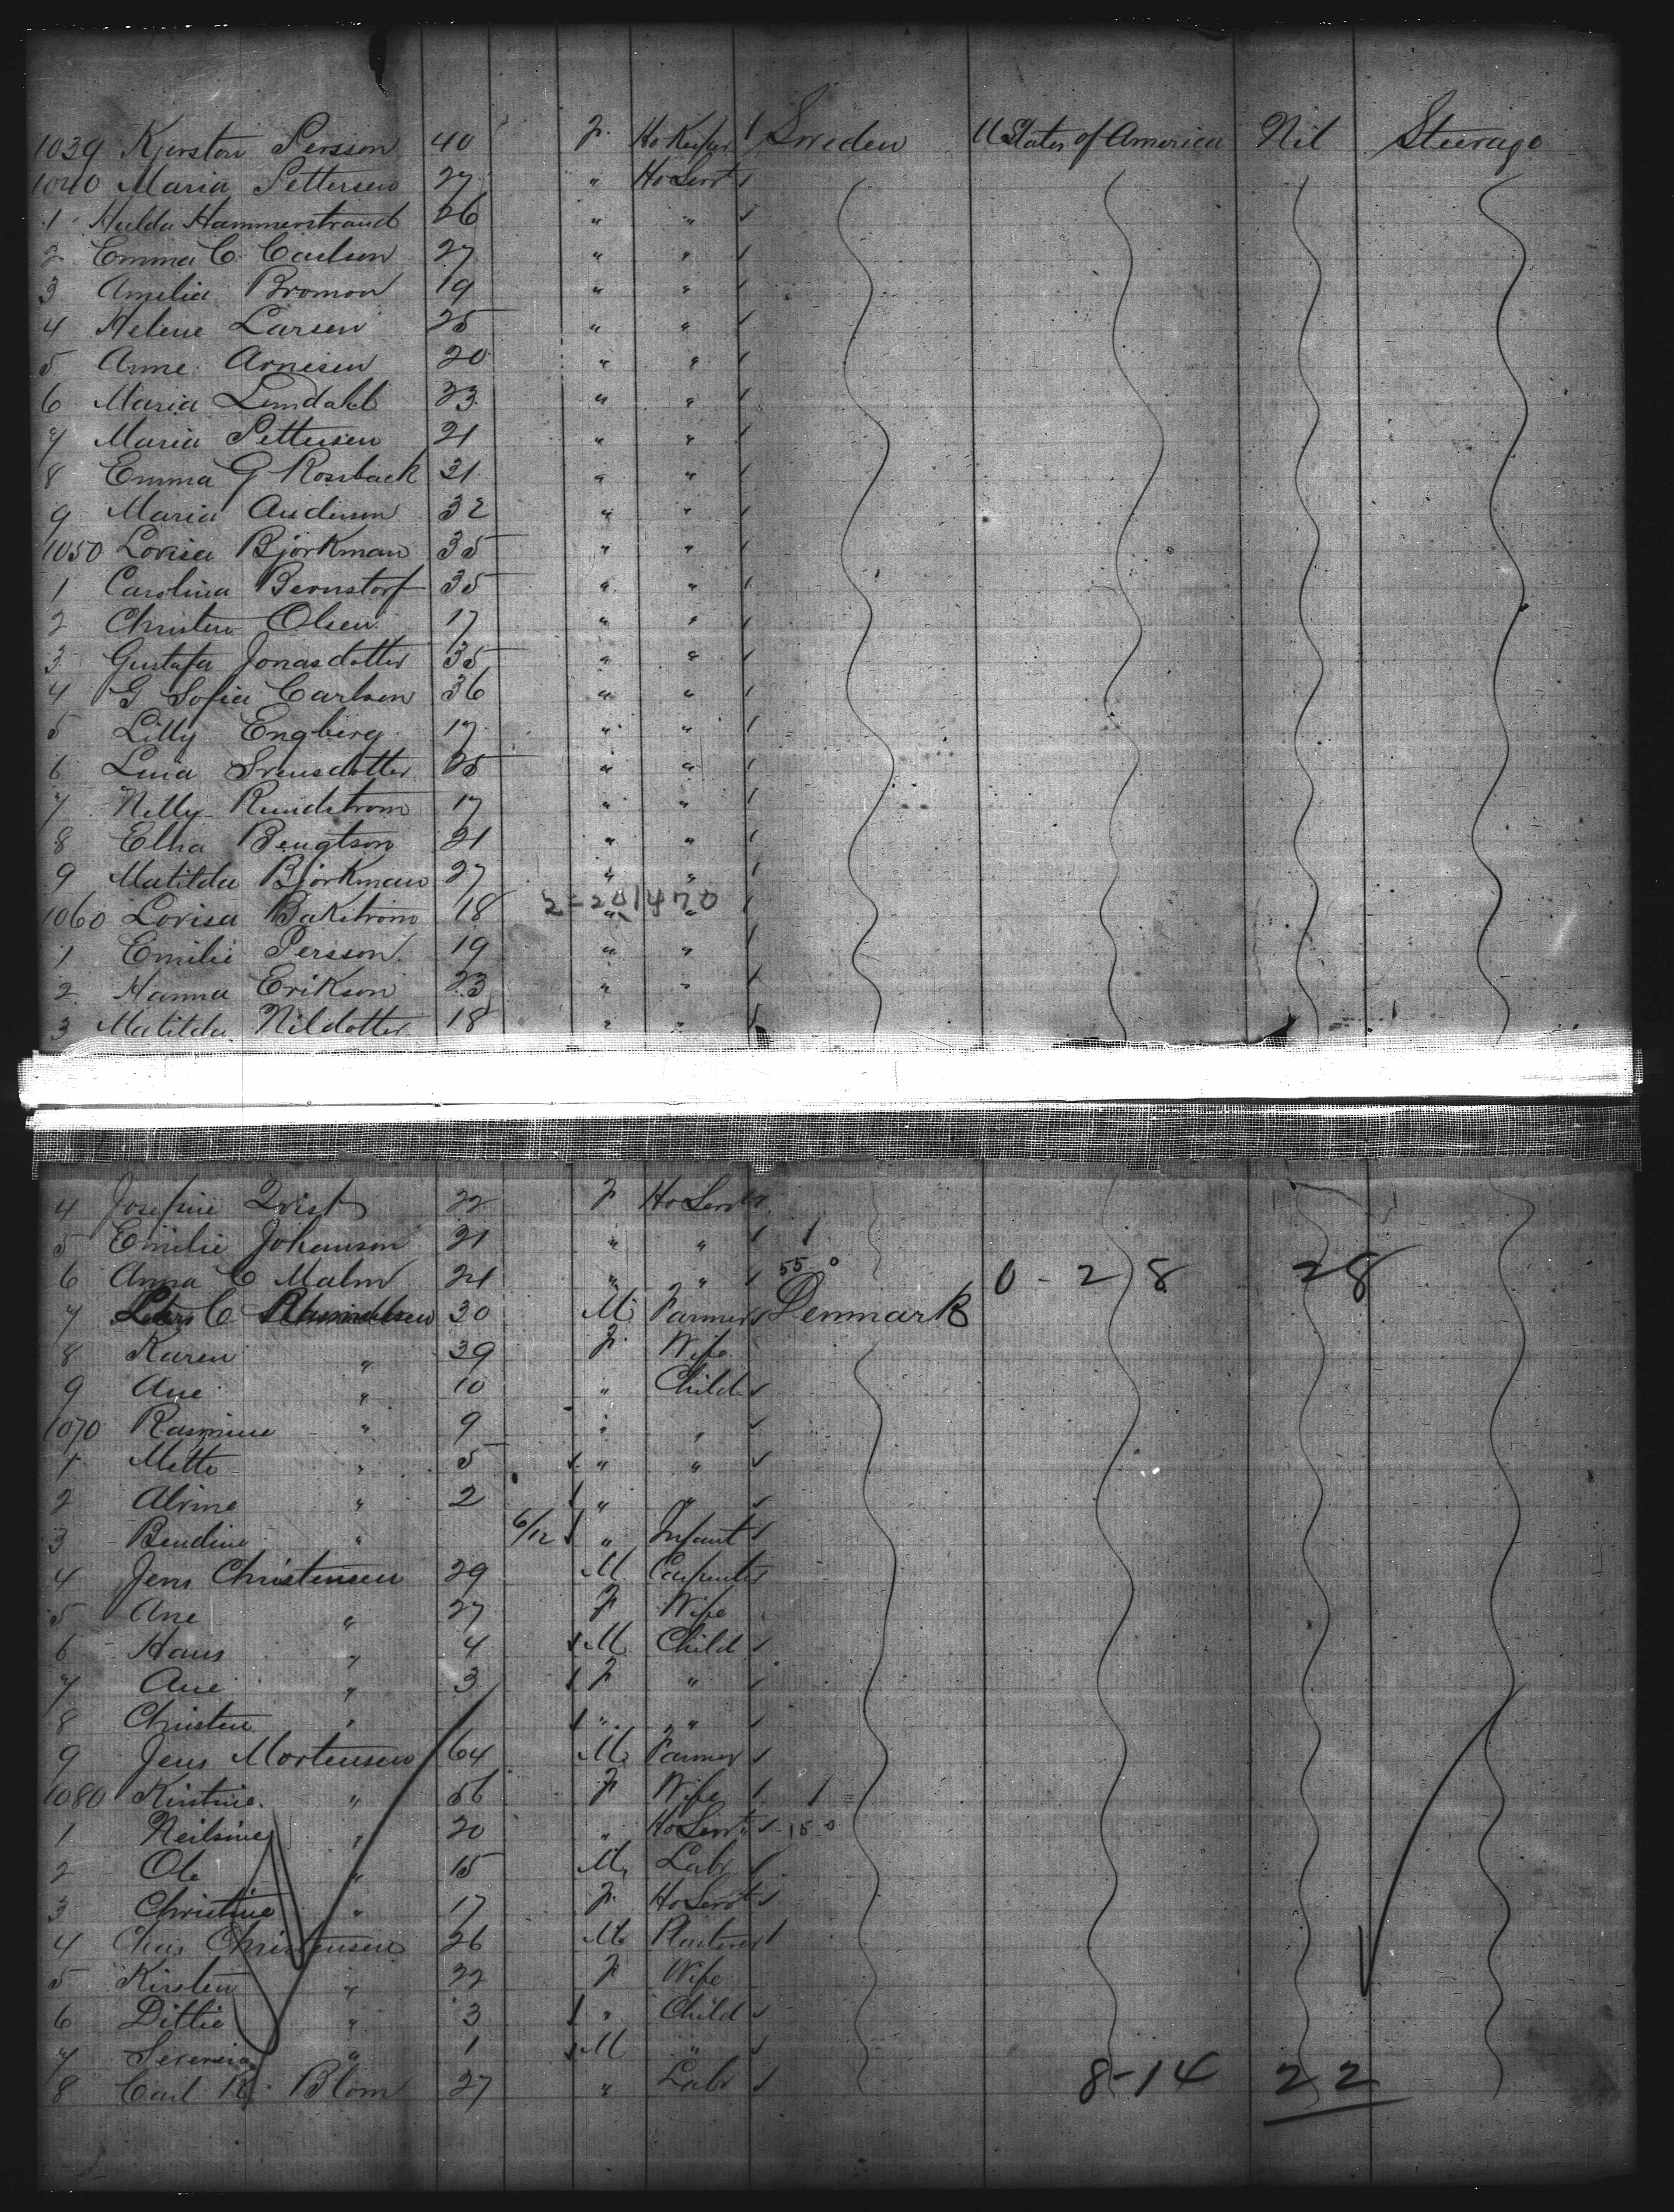 1039 Kjerston Persson 40 F. Ho Keeper Sweden U States of America Nil Steerage
1040 Maria Pettersen 27 " Ho Servt
1 Hulda Hammerstrand 26 " "
2 Emma C. Carlson 27 " "
3 Amelia Broman 19 " "
4 Helene Larsen 25 " "
5 Anne Arnesen 20 " "
6 Maria Lundahl 23 " "
7 Maria Pettersen 21 " "
8 Emma G Rossback 31 " "
9 Maria Anderson 32 " "
1050 Lovisa Björkman 35 " "
1 Carolina Bernstorf 35 " "
2 Christen Olsen 17 " "
3 Gustafa Jonasdotter 35 " "
4 G Sofia Carlson 36 " "
5 Lilly Engberg 17 " "
6 Lina Svensdotter 25 " "
7 Nelly Rundstrom 17 " "
8 Elna Bengtson 21 " "
9 Matilda Björkman 27 " "
1060 Lovisa Bakstrom 18 " "
2-201470
1 Emilie Persson 19 " "
2 Hanna Erikson 23 " "
3 Matilda Nildotter 18 " "
4 Josefine Qvist 22 F Ho Servt
5 Emilie Johanson 21 " "
6 Anna C Malm 24 " " 55 0 0-28 28
7 C 30 M Farmer Denmark
8 Karen " 39 F. Wife
9 Ane " 10 " Child
1070 Rasmine " 9 " "
1 Mette " 5 " "
2 Alvine " 2 " "
3 Bendine " 6/12 " Infant
4 Jens Christensen 29 M Carpenter
5 Ane " 27 F Wife
6 Hans " 4 M Child
7 Ane " 3 F "
8 Christen " " "
9 Jens Mortensen 64 M Farmer
1080 Kirstine " 56 F Wife
1 Neilsine " 20 " Ho Servt 15 0
2 Ole " 15 M Labr
3 Christine " 17 F. Ho Servt
4 Chris Christensen 26 M Plasterer
5 Kirsten " 22 F Wife
6 Dittie " 3 " Child
7 " 1 M "
8 Carl R. Blom 27 " Labr 8-14 22